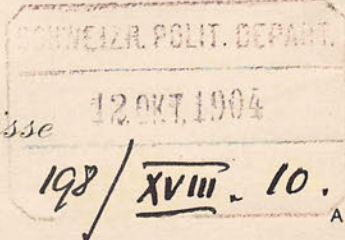 SCHWEIZR. POLIT. DEPART.
12.OKT.1904
sse
198/XVIII. 10.
A